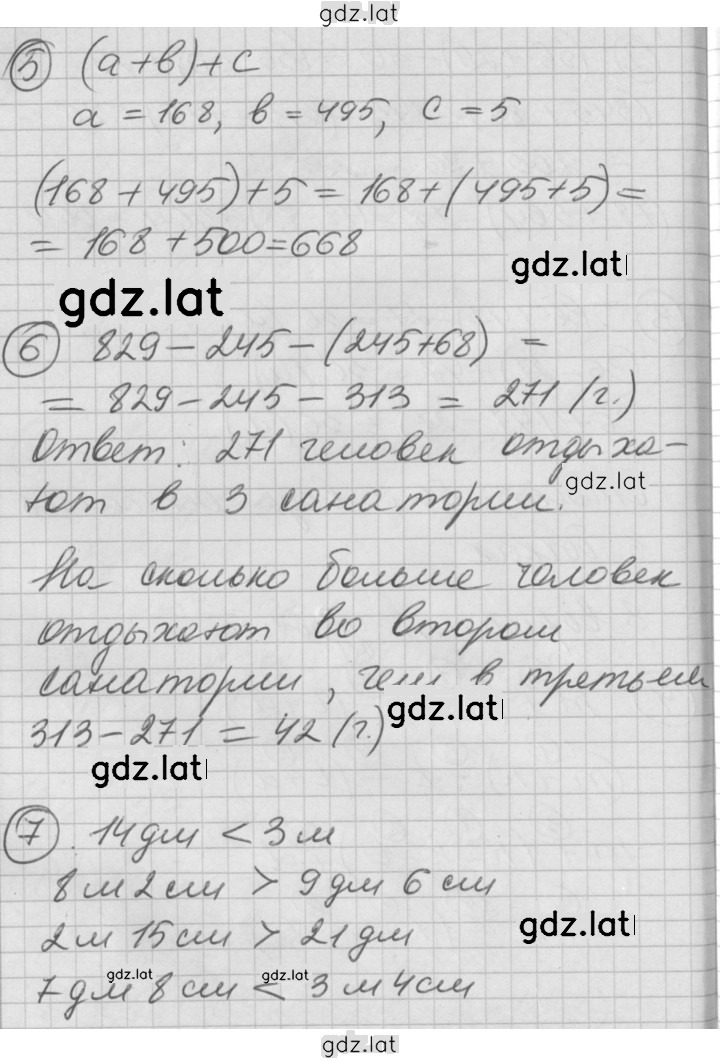 gdz.lat
5 (а+в)+с
а = 168, в = 495, с = 5
(168 + 495) + 5 = 168 + (495+5) =
= 168 + 500 = 668
gdz.lat
gdz.lat
6 829 - 245 - (245+68) =
= 829 - 245 - 313 = 271 (ч.)
Ответ: 271 человек отдыха-
ют в 3 санатории.
gdz.lat
На сколько больше человек
отдыхают во втором
санатории, чем в третьем
313 - 271 = 42 (ч.)
gdz.lat
gdz.lat
7. 14 дм < 3 м
8 м 2 см > 9 дм 6 см
2 м 15 см > 21 дм
gdz.lat
7 дм 8 см < 3 м 4 см
gdz.lat gdz.lat
gdz.lat